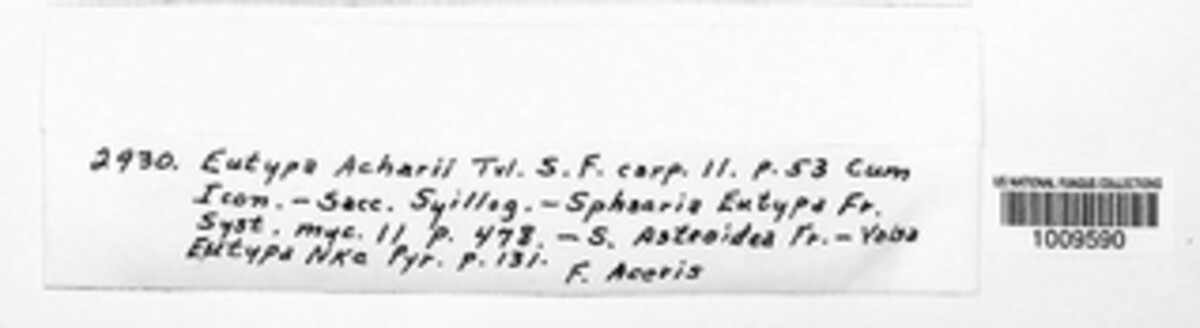 2930. Eutypa Acharii Tvl. S. F. carp. 11. p. 53 Cum
Icon. — Sacc. Syilleg. — Sphaeria Eutypa Fr.
Syst. myc. 11 p. 478. — S. Asteroidea Fr. — Valsa
Eutypa Nke Pyr. p. 131.
F. Aceris
US NATIONAL FUNGUS COLLECTIONS
1009590